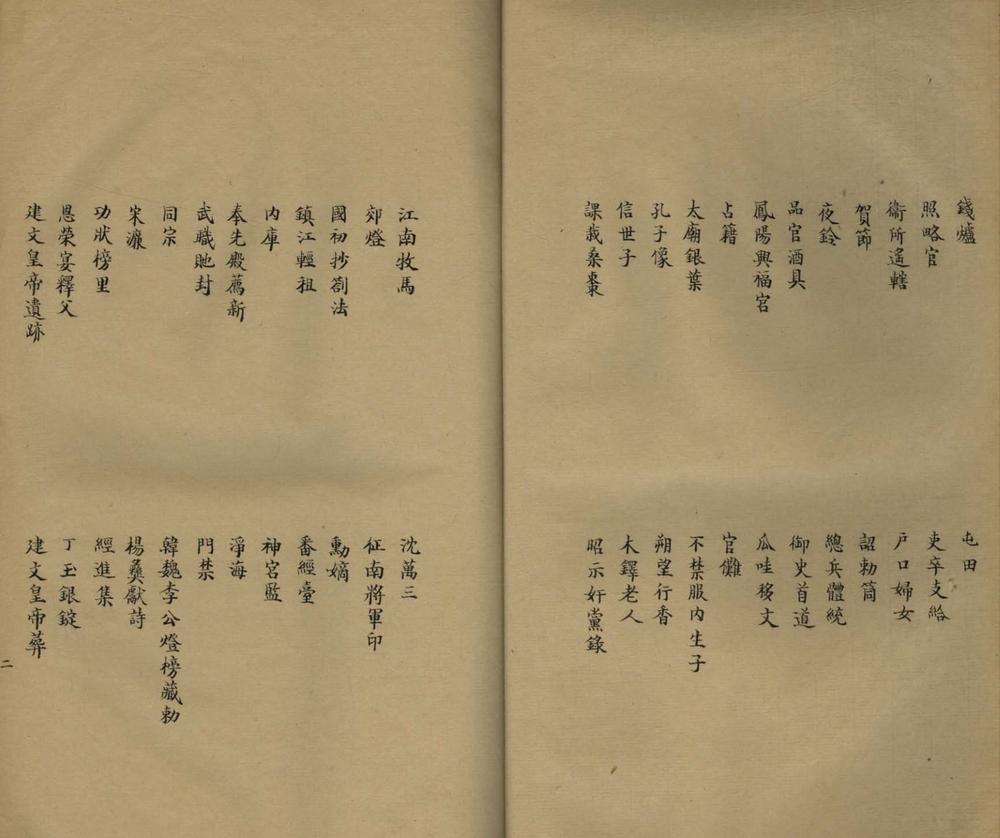 錢爐
屯田
照略官
吏卒支給
衛所遙轄
户口婦女
賀節
詔勅筒
夜鈴
總兵體統
品官酒具
御史首道
鳳陽興福宮
瓜哇移文
占籍
官儺
太廟銀葉
不禁服内生子
孔子像
朔望行香
信世子
木鐸老人
課栽桑棗
昭示奸黨錄
江南牧馬
沈萬三
郊燈
征南將軍印
國初抄劄法
勳嫡
鎮江輕租
番經臺
内庫
神宮監
奉先殿薦新
淨海
武職貤封
門禁
同宗
韓魏李公燈榜藏勅
宋濂
楊彝獻詩
功狀榜里
經進集
恩榮宴釋父
丁玉銀錠
建文皇帝遺跡
建文皇帝葬
二